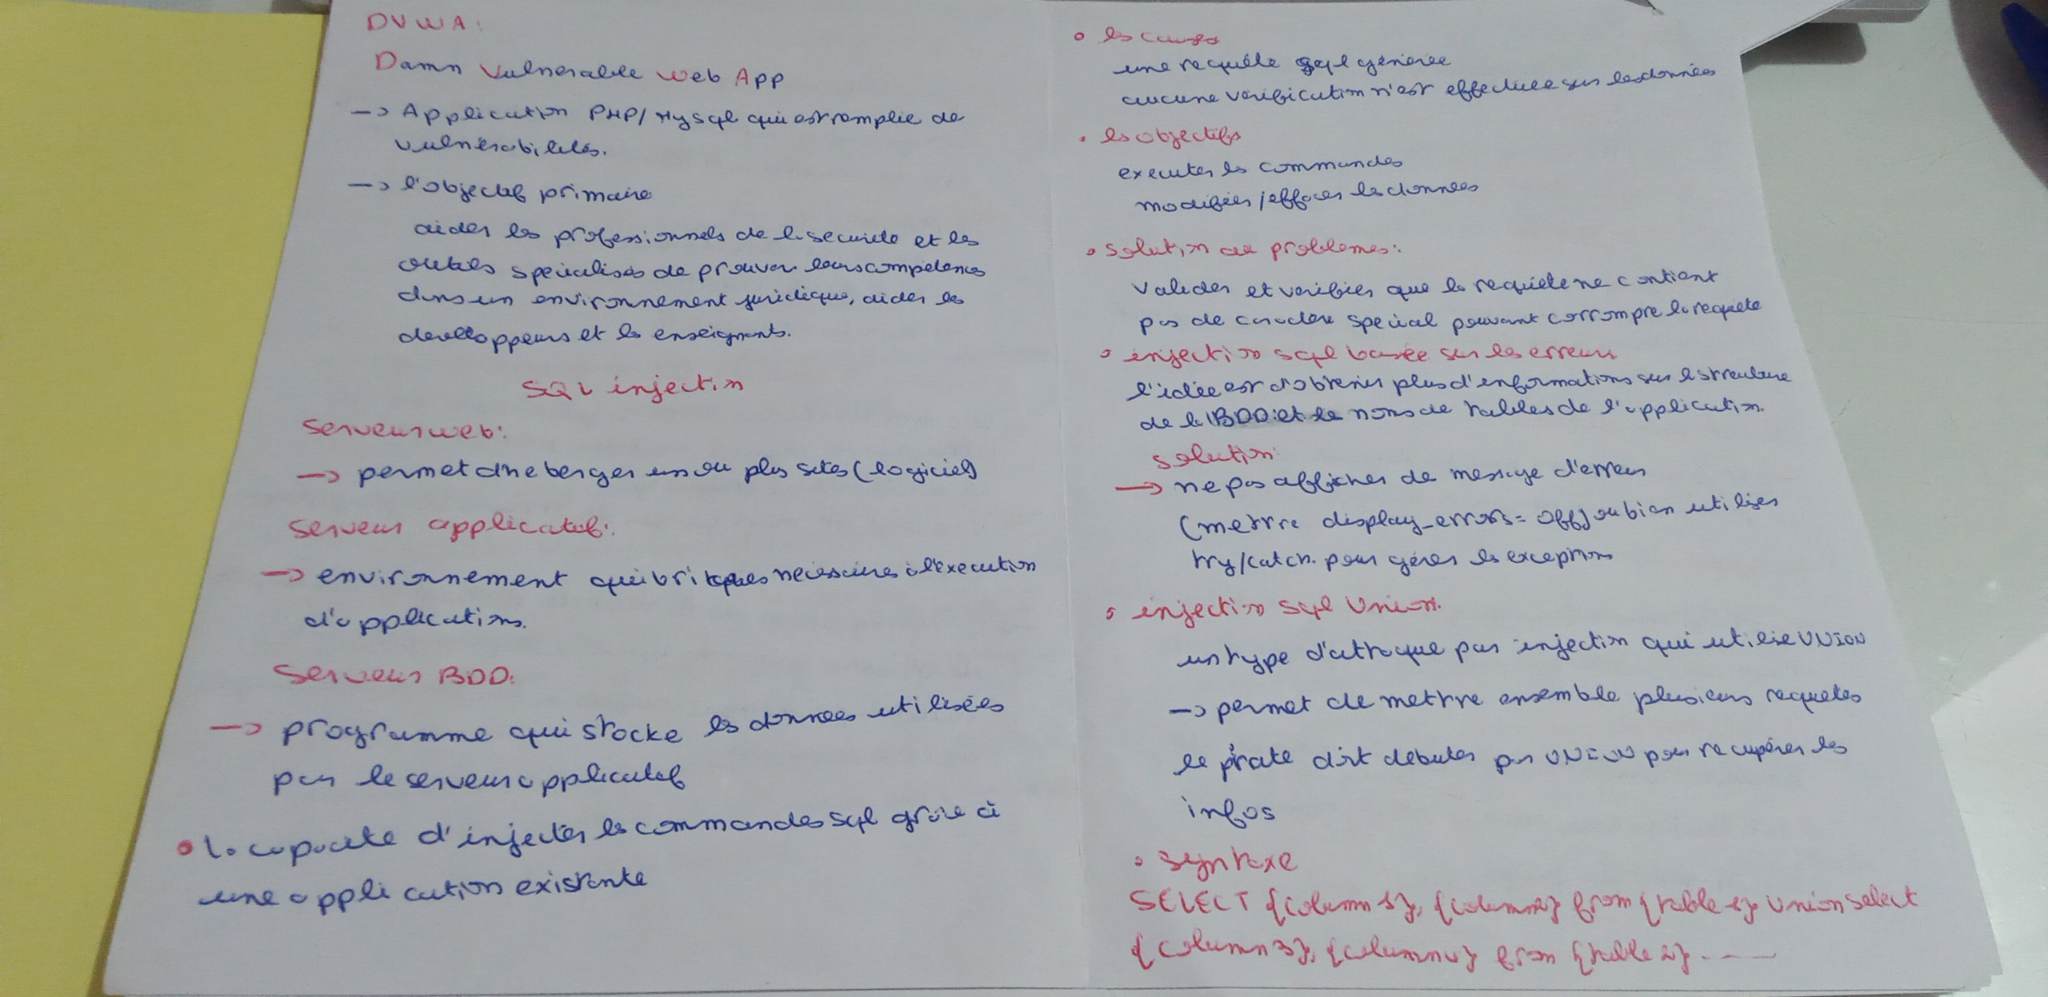 DVWA:
Damn Vulnerable Web App
-> Application PHP/MySql qui est remplie de
vulnérabilités.
-> l'objectif primaire
aider les professionnels de la sécurité et les
outils spécialisés de prouver leurs compétences
dans un environnement juridique, aider les
développeurs et les enseignants.
SQL injection
Serveur web:
-> permet d'heberger un ou plus sites (logiciel)
Serveur applicatif:
-> environnement qui briques nécessaires à l'execution
d'applications.
Serveur BDD:
-> programme qui stocke les données utilisées
par le serveur applicatif
• la capacité d'injecter les commandes sql grâce à
une application existante
• les causes
une requête sql générée
aucune vérification n'est effectuée sur les données
• les objectifs
executer les commandes
modifier/effacer les données
• solution au problemes:
valider et vérifier que la requête ne contient
pas de caractere special pouvant corrompre la requête
• injection sql basée sur les erreurs
l'idée est d'obtenir plus d'informations sur la structure
de la BDD et le noms de tables de l'application.
solution
-> ne pas afficher de message d'erreur
(mettre display_errors= off) ou bien utiliser
try/catch. pour gérer les exceptions
• injection sql Union.
un type d'attaque par injection qui utilise UNION
-> permet de mettre ensemble plusieurs requetes
le pirate doit debuter par UNION pour recupérer les
infos
• syntaxe
SELECT {column 1}, {column2} from {table 1} Union select
{column3}, {column4} from {table 2} ----